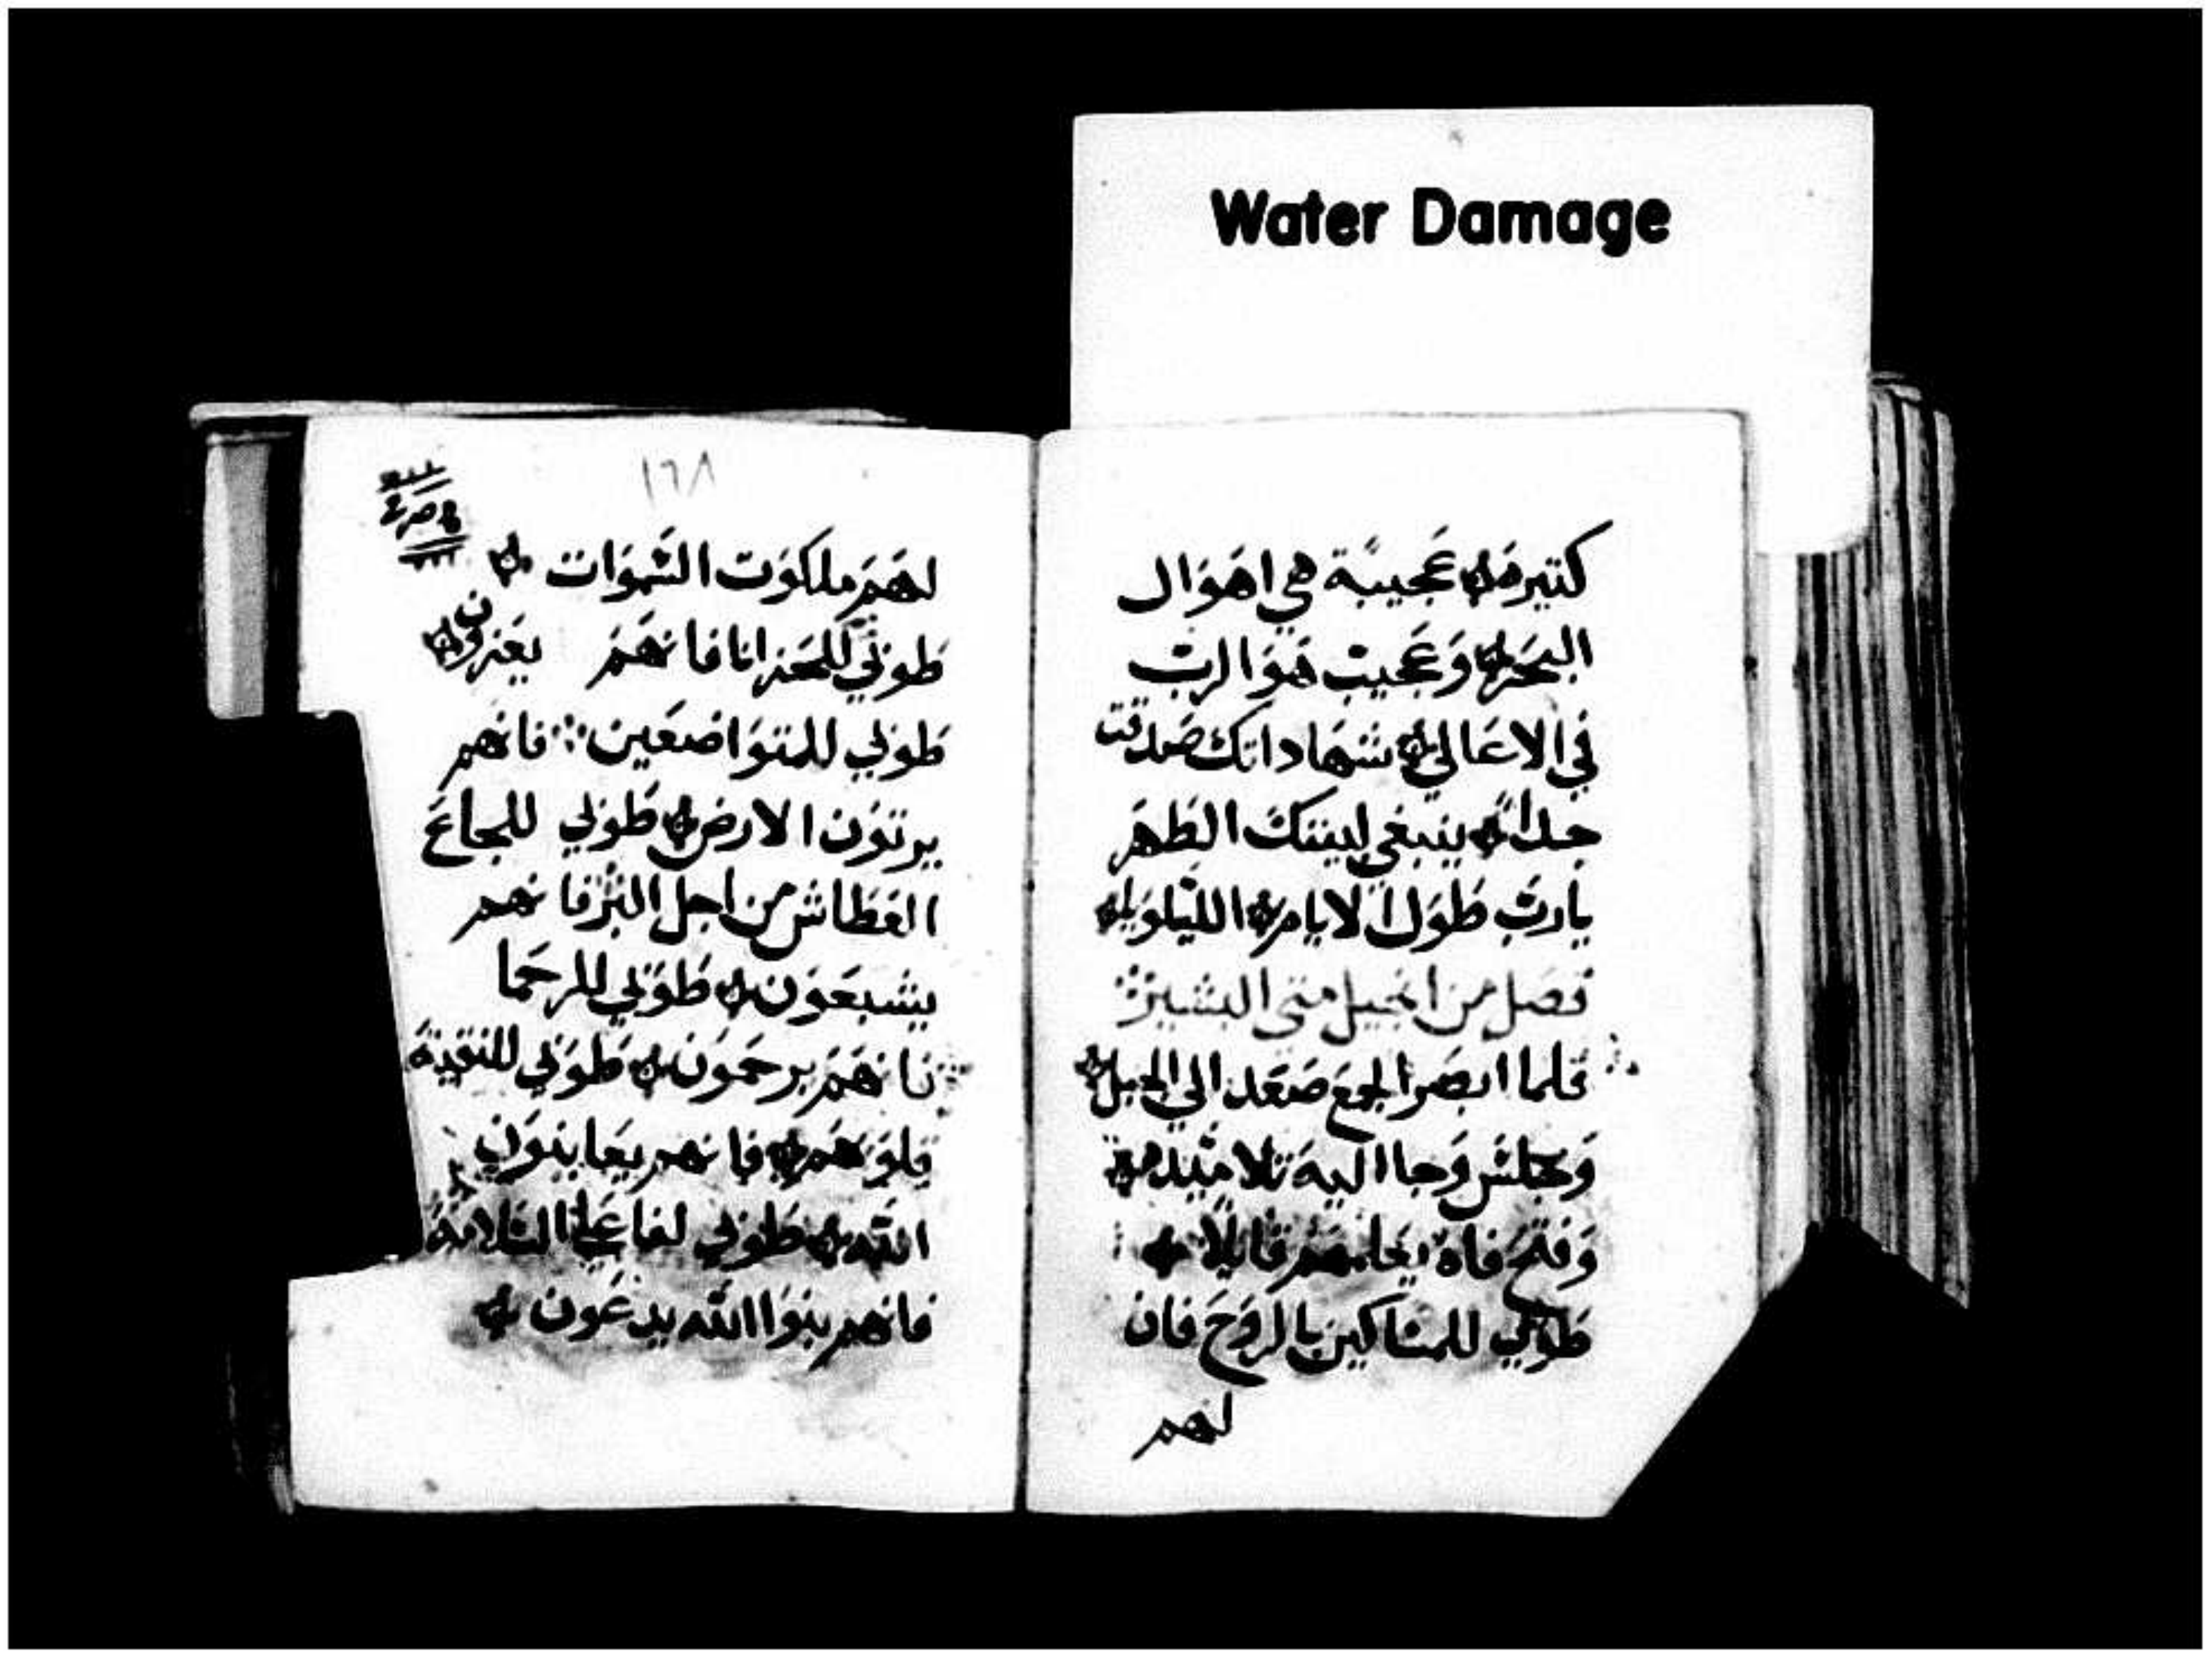 Water Damage
كتيرة عجيبة هي اهوال
البحر وعجيب هو الرب
في الاعالي شهاداتك صدقت
جداً ينبغي لبيتك الطهر
يارب طول الايام الليلويا
فصل من انجيل متي البشير
فلما ابصر الجمع صعد الي الجبل
وجلس وجا اليه تلاميده
وفتح فاه يعلمهم قايلاً
طوبي للمساكين بالروح فان
لهم
١٦٨
لهم ملكوت السموات
طوبي للحزانا فانهم يعزون
طوبي للمتواضعين فانهم
يرتون الارض طوبي للجياع
العطاش من اجل البر فانهم
يشبعون طوبي للرحما
فانهم يرحمون طوبي للنقية
قلوبهم فانهم يعاينون
الله طوبي لفاعلي السلامة
فانهم بنوا الله يدعون